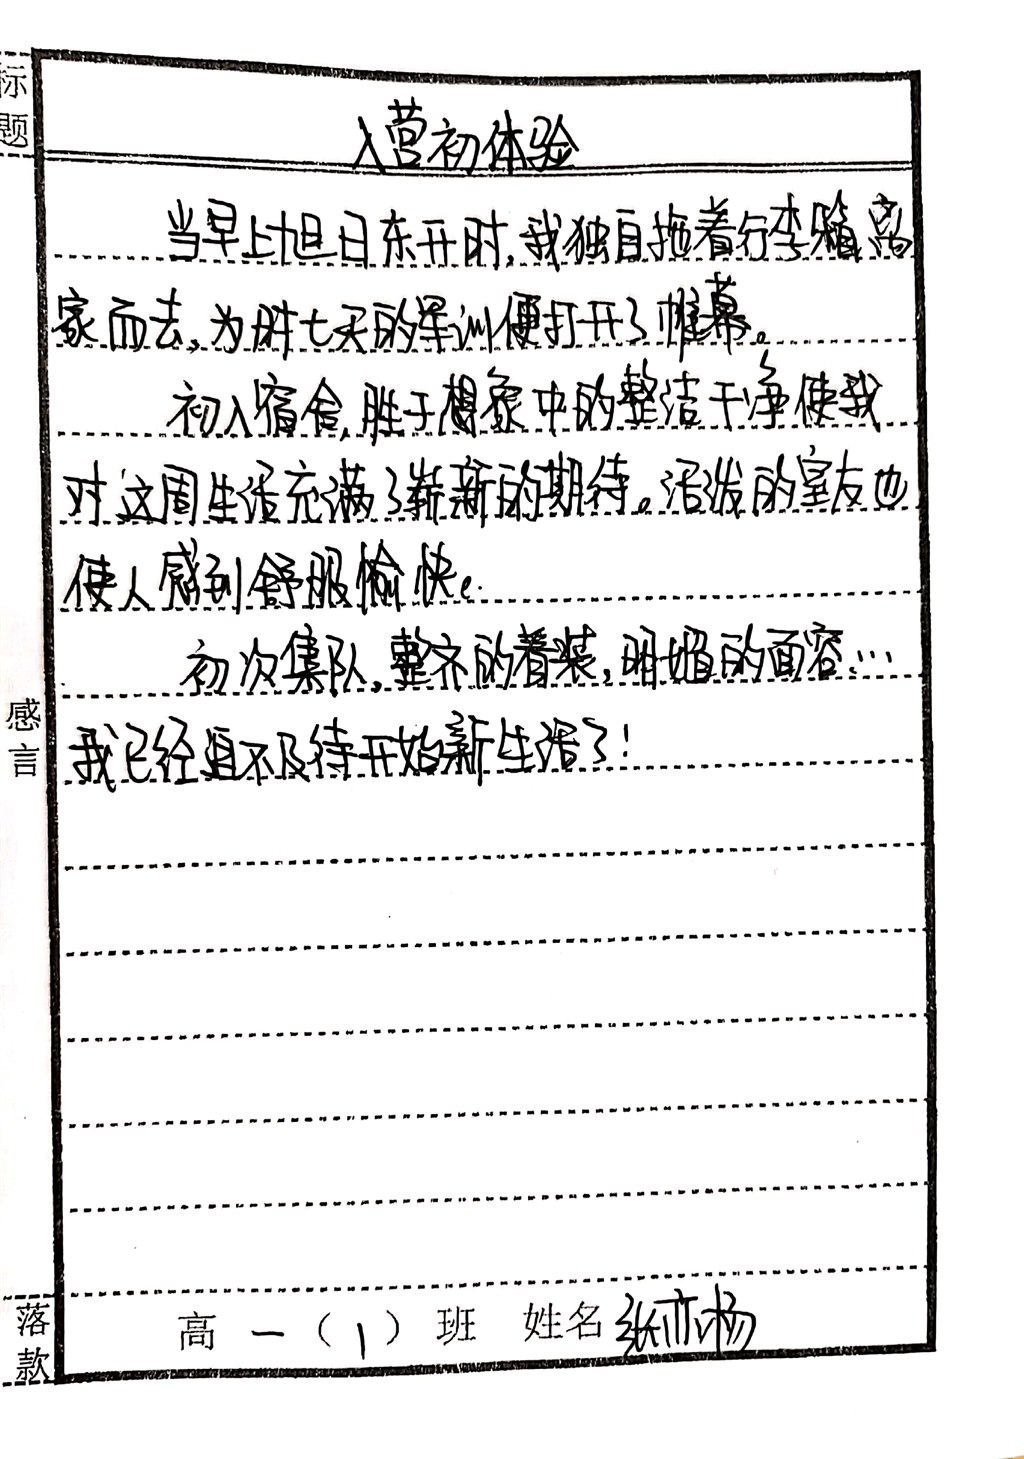 标题
入营初体验
当早上旭日东开时,我独自拖着行李箱离
家而去,为时七天的军训便打开了帷幕。
初入宿舍,胜于想象中的整洁干净使我
对这周生活充满了崭新的期待。活泼的室友也
使人感到舒服愉快。
初次集队,整齐的着装,明媚的面容…
我已经迫不及待开始新生活了!
感言
落款
高一(1)班 姓名 张亦杨